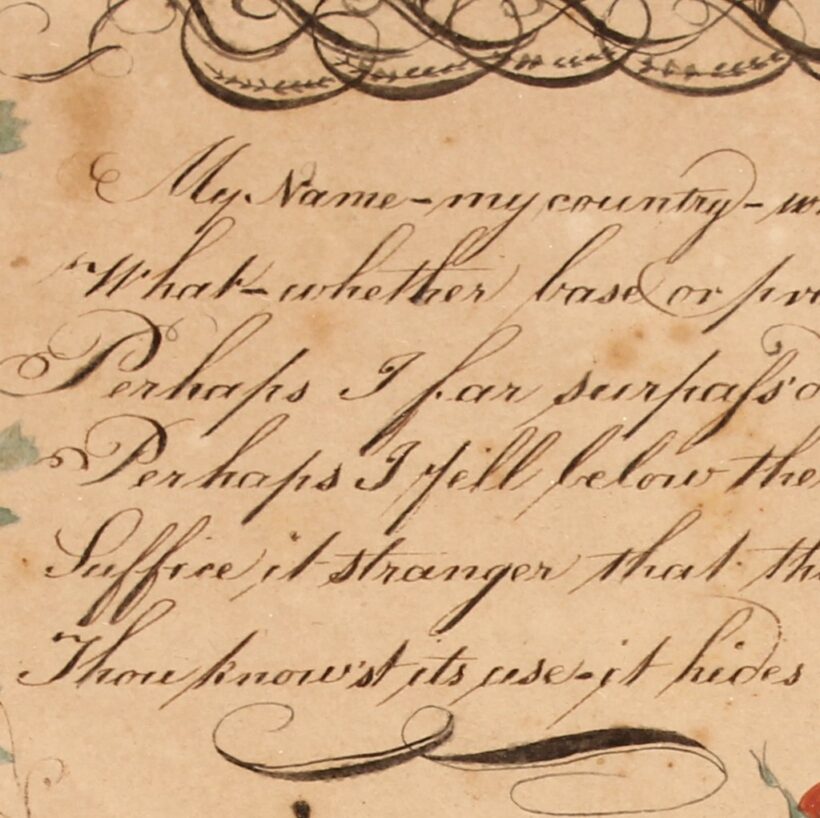 My Name - my country -
What - whether base or
Perhaps I far surpaſs'd
Perhaps I fell below
Suffice it stranger that
Thou know'st its use - it hides